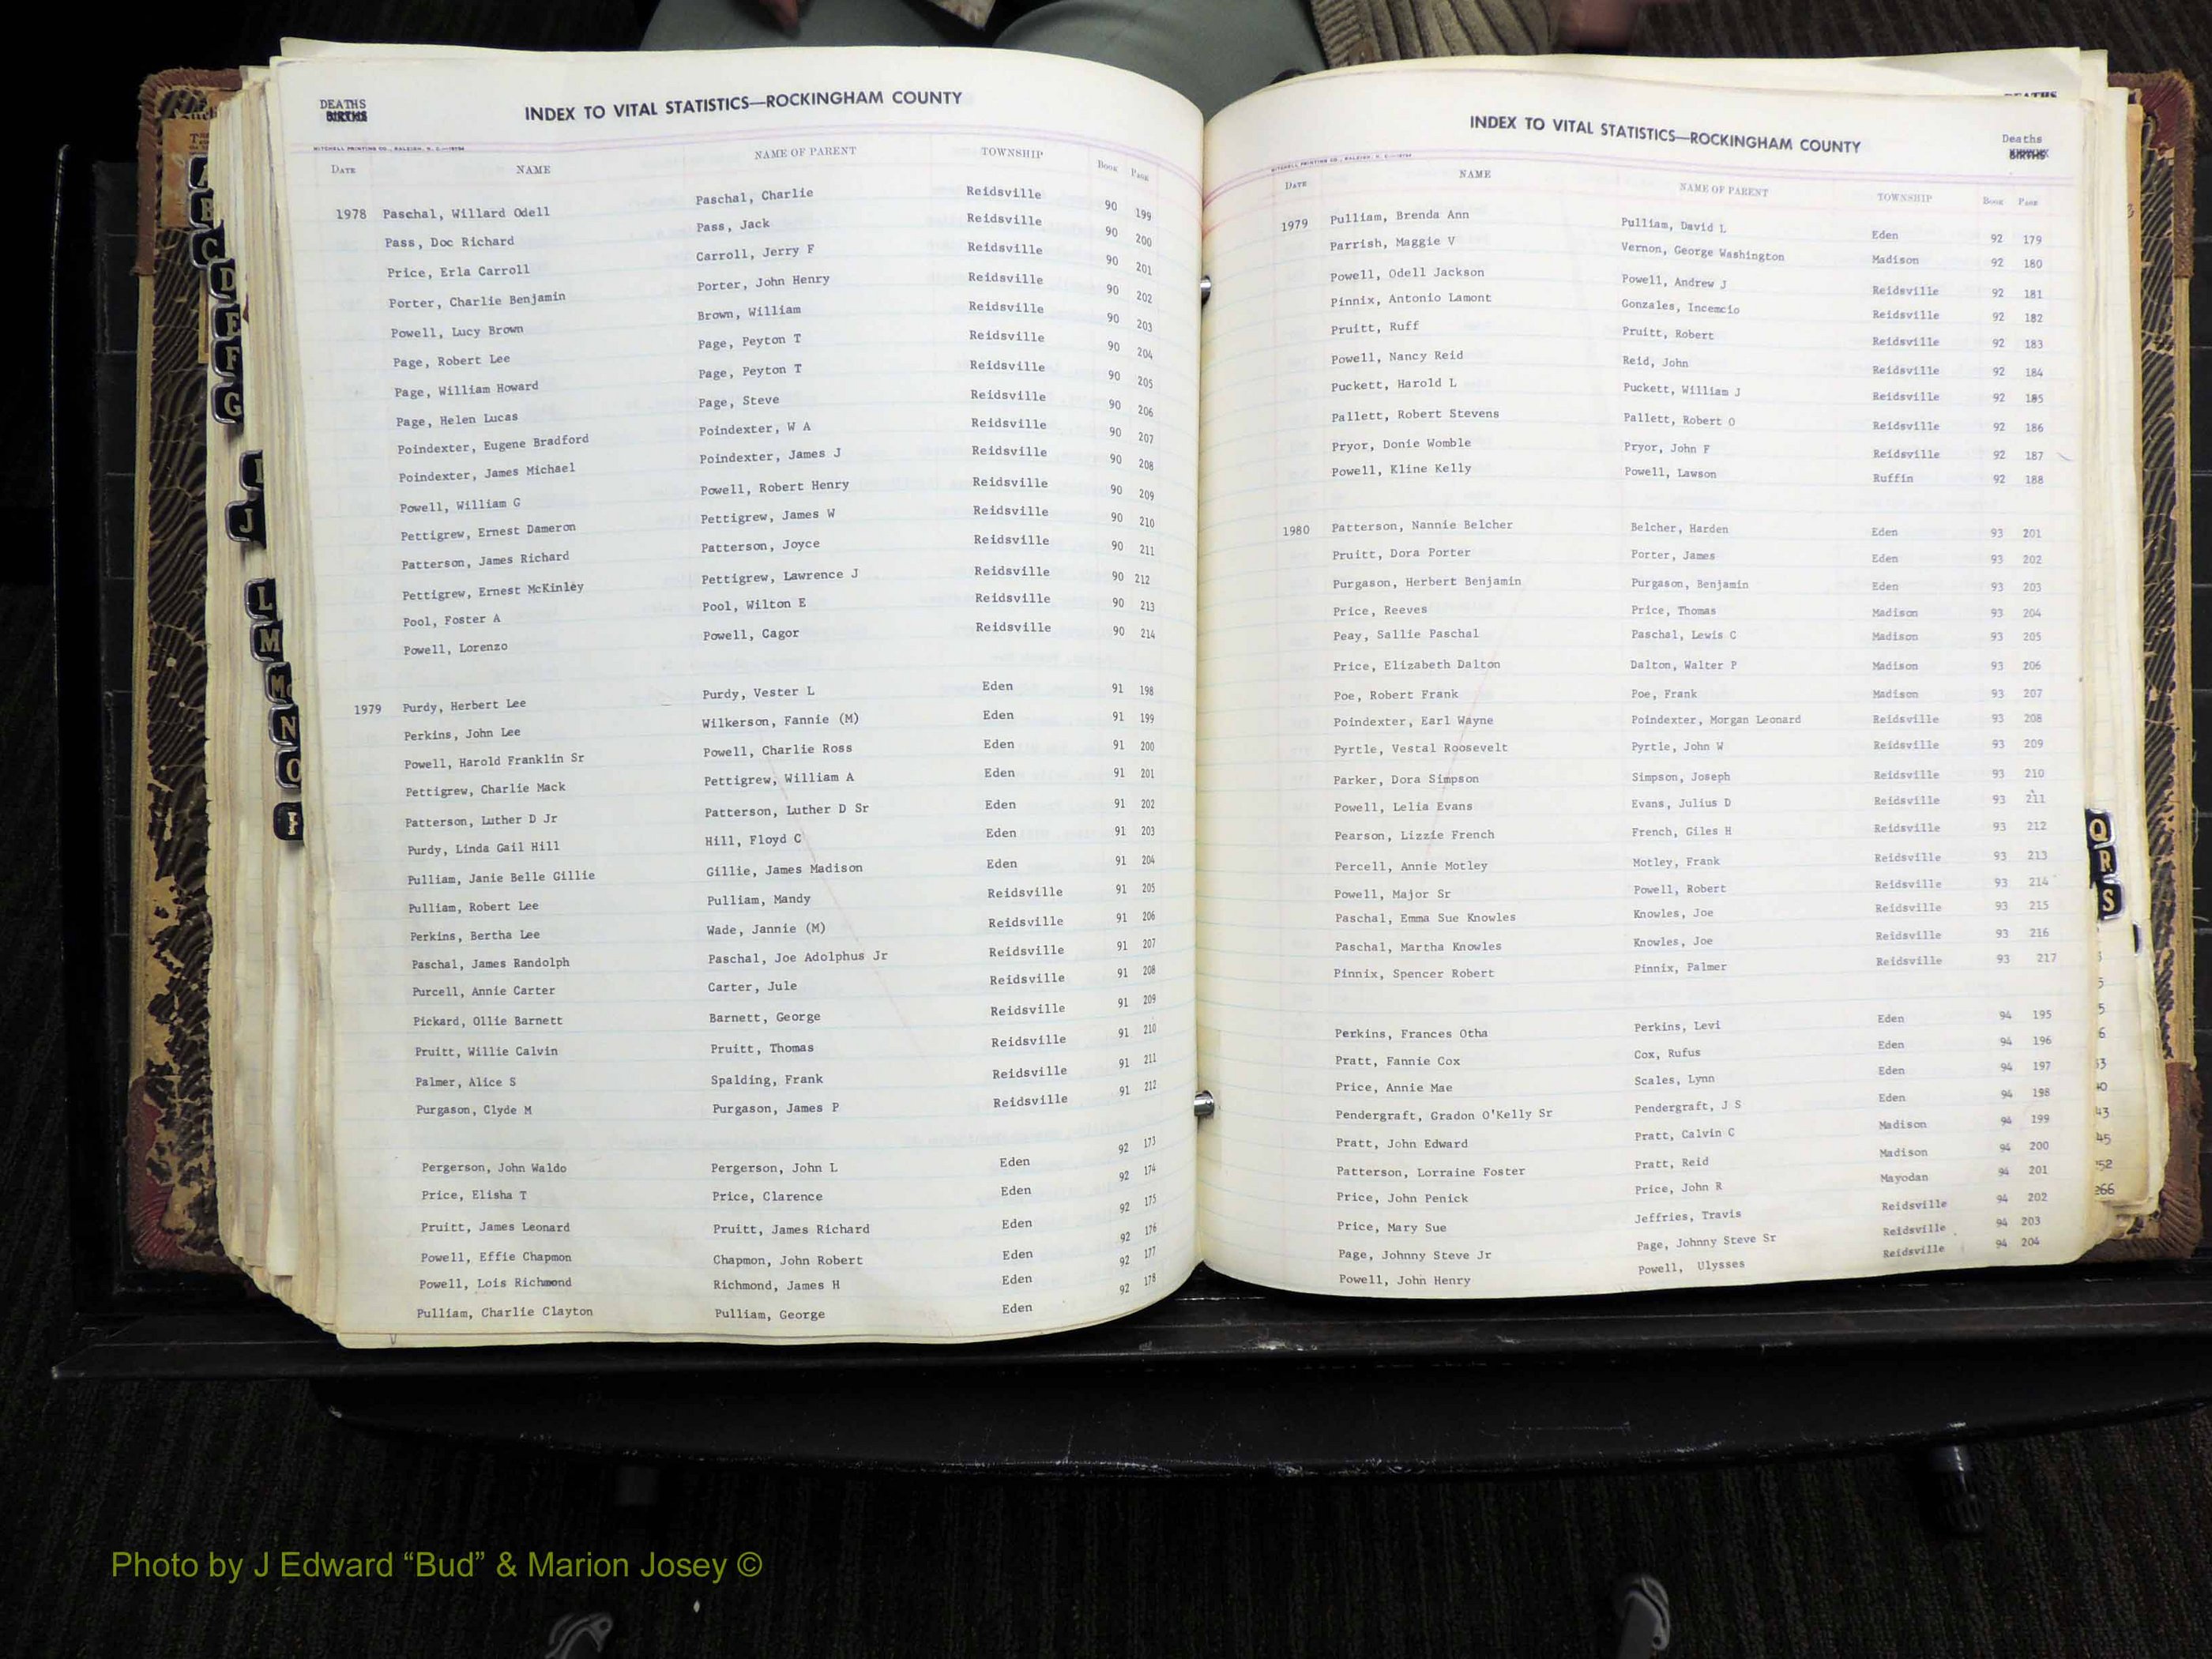 DEATHS
BIRTHS
INDEX TO VITAL STATISTICS—ROCKINGHAM COUNTY
MITCHELL PRINTING CO., RALEIGH, N. C.
DATE NAME NAME OF PARENT TOWNSHIP BOOK PAGE
1978 Paschal, Willard Odell Paschal, Charlie Reidsville 90 199
Pass, Doc Richard Pass, Jack Reidsville 90 200
Price, Erla Carroll Carroll, Jerry F Reidsville 90 201
Porter, Charlie Benjamin Porter, John Henry Reidsville 90 202
Powell, Lucy Brown Brown, William Reidsville 90 203
Page, Robert Lee Page, Peyton T Reidsville 90 204
Page, William Howard Page, Peyton T Reidsville 90 205
Page, Helen Lucas Page, Steve Reidsville 90 206
Poindexter, Eugene Bradford Poindexter, W A Reidsville 90 207
Poindexter, James Michael Poindexter, James J Reidsville 90 208
Powell, William G Powell, Robert Henry Reidsville 90 209
Pettigrew, Ernest Dameron Pettigrew, James W Reidsville 90 210
Patterson, James Richard Patterson, Joyce Reidsville 90 211
Pettigrew, Ernest McKinley Pettigrew, Lawrence J Reidsville 90 212
Pool, Foster A Pool, Wilton E Reidsville 90 213
Powell, Lorenzo Powell, Cagor Reidsville 90 214
1979 Purdy, Herbert Lee Purdy, Vester L Eden 91 198
Perkins, John Lee Wilkerson, Fannie (M) Eden 91 199
Powell, Harold Franklin Sr Powell, Charlie Ross Eden 91 200
Pettigrew, Charlie Mack Pettigrew, William A Eden 91 201
Patterson, Luther D Jr Patterson, Luther D Sr Eden 91 202
Purdy, Linda Gail Hill Hill, Floyd C Eden 91 203
Pulliam, Janie Belle Gillie Gillie, James Madison Eden 91 204
Pulliam, Robert Lee Pulliam, Mandy Reidsville 91 205
Perkins, Bertha Lee Wade, Jannie (M) Reidsville 91 206
Paschal, James Randolph Paschal, Joe Adolphus Jr Reidsville 91 207
Purcell, Annie Carter Carter, Jule Reidsville 91 208
Pickard, Ollie Barnett Barnett, George Reidsville 91 209
Pruitt, Willie Calvin Pruitt, Thomas Reidsville 91 210
Palmer, Alice S Spalding, Frank Reidsville 91 211
Purgason, Clyde M Purgason, James P Reidsville 91 212
Pergerson, John Waldo Pergerson, John L Eden 92 173
Price, Elisha T Price, Clarence Eden 92 174
Pruitt, James Leonard Pruitt, James Richard Eden 92 175
Powell, Effie Chapmon Chapmon, John Robert Eden 92 176
Powell, Lois Richmond Richmond, James H Eden 92 177
Pulliam, Charlie Clayton Pulliam, George Eden 92 178
DEATHS
INDEX TO VITAL STATISTICS—ROCKINGHAM COUNTY
Deaths
BIRTHS
MITCHELL PRINTING CO., RALEIGH, N. C.
DATE NAME NAME OF PARENT TOWNSHIP BOOK PAGE
1979 Pulliam, Brenda Ann Pulliam, David L Eden 92 179
Parrish, Maggie V Vernon, George Washington Madison 92 180
Powell, Odell Jackson Powell, Andrew J Reidsville 92 181
Pinnix, Antonio Lamont Gonzales, Incemcio Reidsville 92 182
Pruitt, Ruff Pruitt, Robert Reidsville 92 183
Powell, Nancy Reid Reid, John Reidsville 92 184
Puckett, Harold L Puckett, William J Reidsville 92 185
Pallett, Robert Stevens Pallett, Robert O Reidsville 92 186
Pryor, Donie Womble Pryor, John F Reidsville 92 187
Powell, Kline Kelly Powell, Lawson Ruffin 92 188
1980 Patterson, Nannie Belcher Belcher, Harden Eden 93 201
Pruitt, Dora Porter Porter, James Eden 93 202
Purgason, Herbert Benjamin Purgason, Benjamin Eden 93 203
Price, Reeves Price, Thomas Madison 93 204
Peay, Sallie Paschal Paschal, Lewis C Madison 93 205
Price, Elizabeth Dalton Dalton, Walter P Madison 93 206
Poe, Robert Frank Poe, Frank Madison 93 207
Poindexter, Earl Wayne Poindexter, Morgan Leonard Reidsville 93 208
Pyrtle, Vestal Roosevelt Pyrtle, John W Reidsville 93 209
Parker, Dora Simpson Simpson, Joseph Reidsville 93 210
Powell, Lelia Evans Evans, Julius D Reidsville 93 211
Pearson, Lizzie French French, Giles H Reidsville 93 212
Percell, Annie Motley Motley, Frank Reidsville 93 213
Powell, Major Sr Powell, Robert Reidsville 93 214
Paschal, Emma Sue Knowles Knowles, Joe Reidsville 93 215
Paschal, Martha Knowles Knowles, Joe Reidsville 93 216
Pinnix, Spencer Robert Pinnix, Palmer Reidsville 93 217
Perkins, Frances Otha Perkins, Levi Eden 94 195
Pratt, Fannie Cox Cox, Rufus Eden 94 196
Price, Annie Mae Scales, Lynn Eden 94 197
Pendergraft, Gradon O'Kelly Sr Pendergraft, J S Eden 94 198
Pratt, John Edward Pratt, Calvin C Madison 94 199
Patterson, Lorraine Foster Pratt, Reid Madison 94 200
Price, John Penick Price, John R Mayodan 94 201
Price, Mary Sue Jeffries, Travis Reidsville 94 202
Page, Johnny Steve Jr Page, Johnny Steve Sr Reidsville 94 203
Powell, John Henry Powell, Ulysses Reidsville 94 204
A
B
C
D
E
F
G
I
J
L
M
Mc
N
O
P
Q
R
S
Photo by J Edward “Bud” & Marion Josey ©